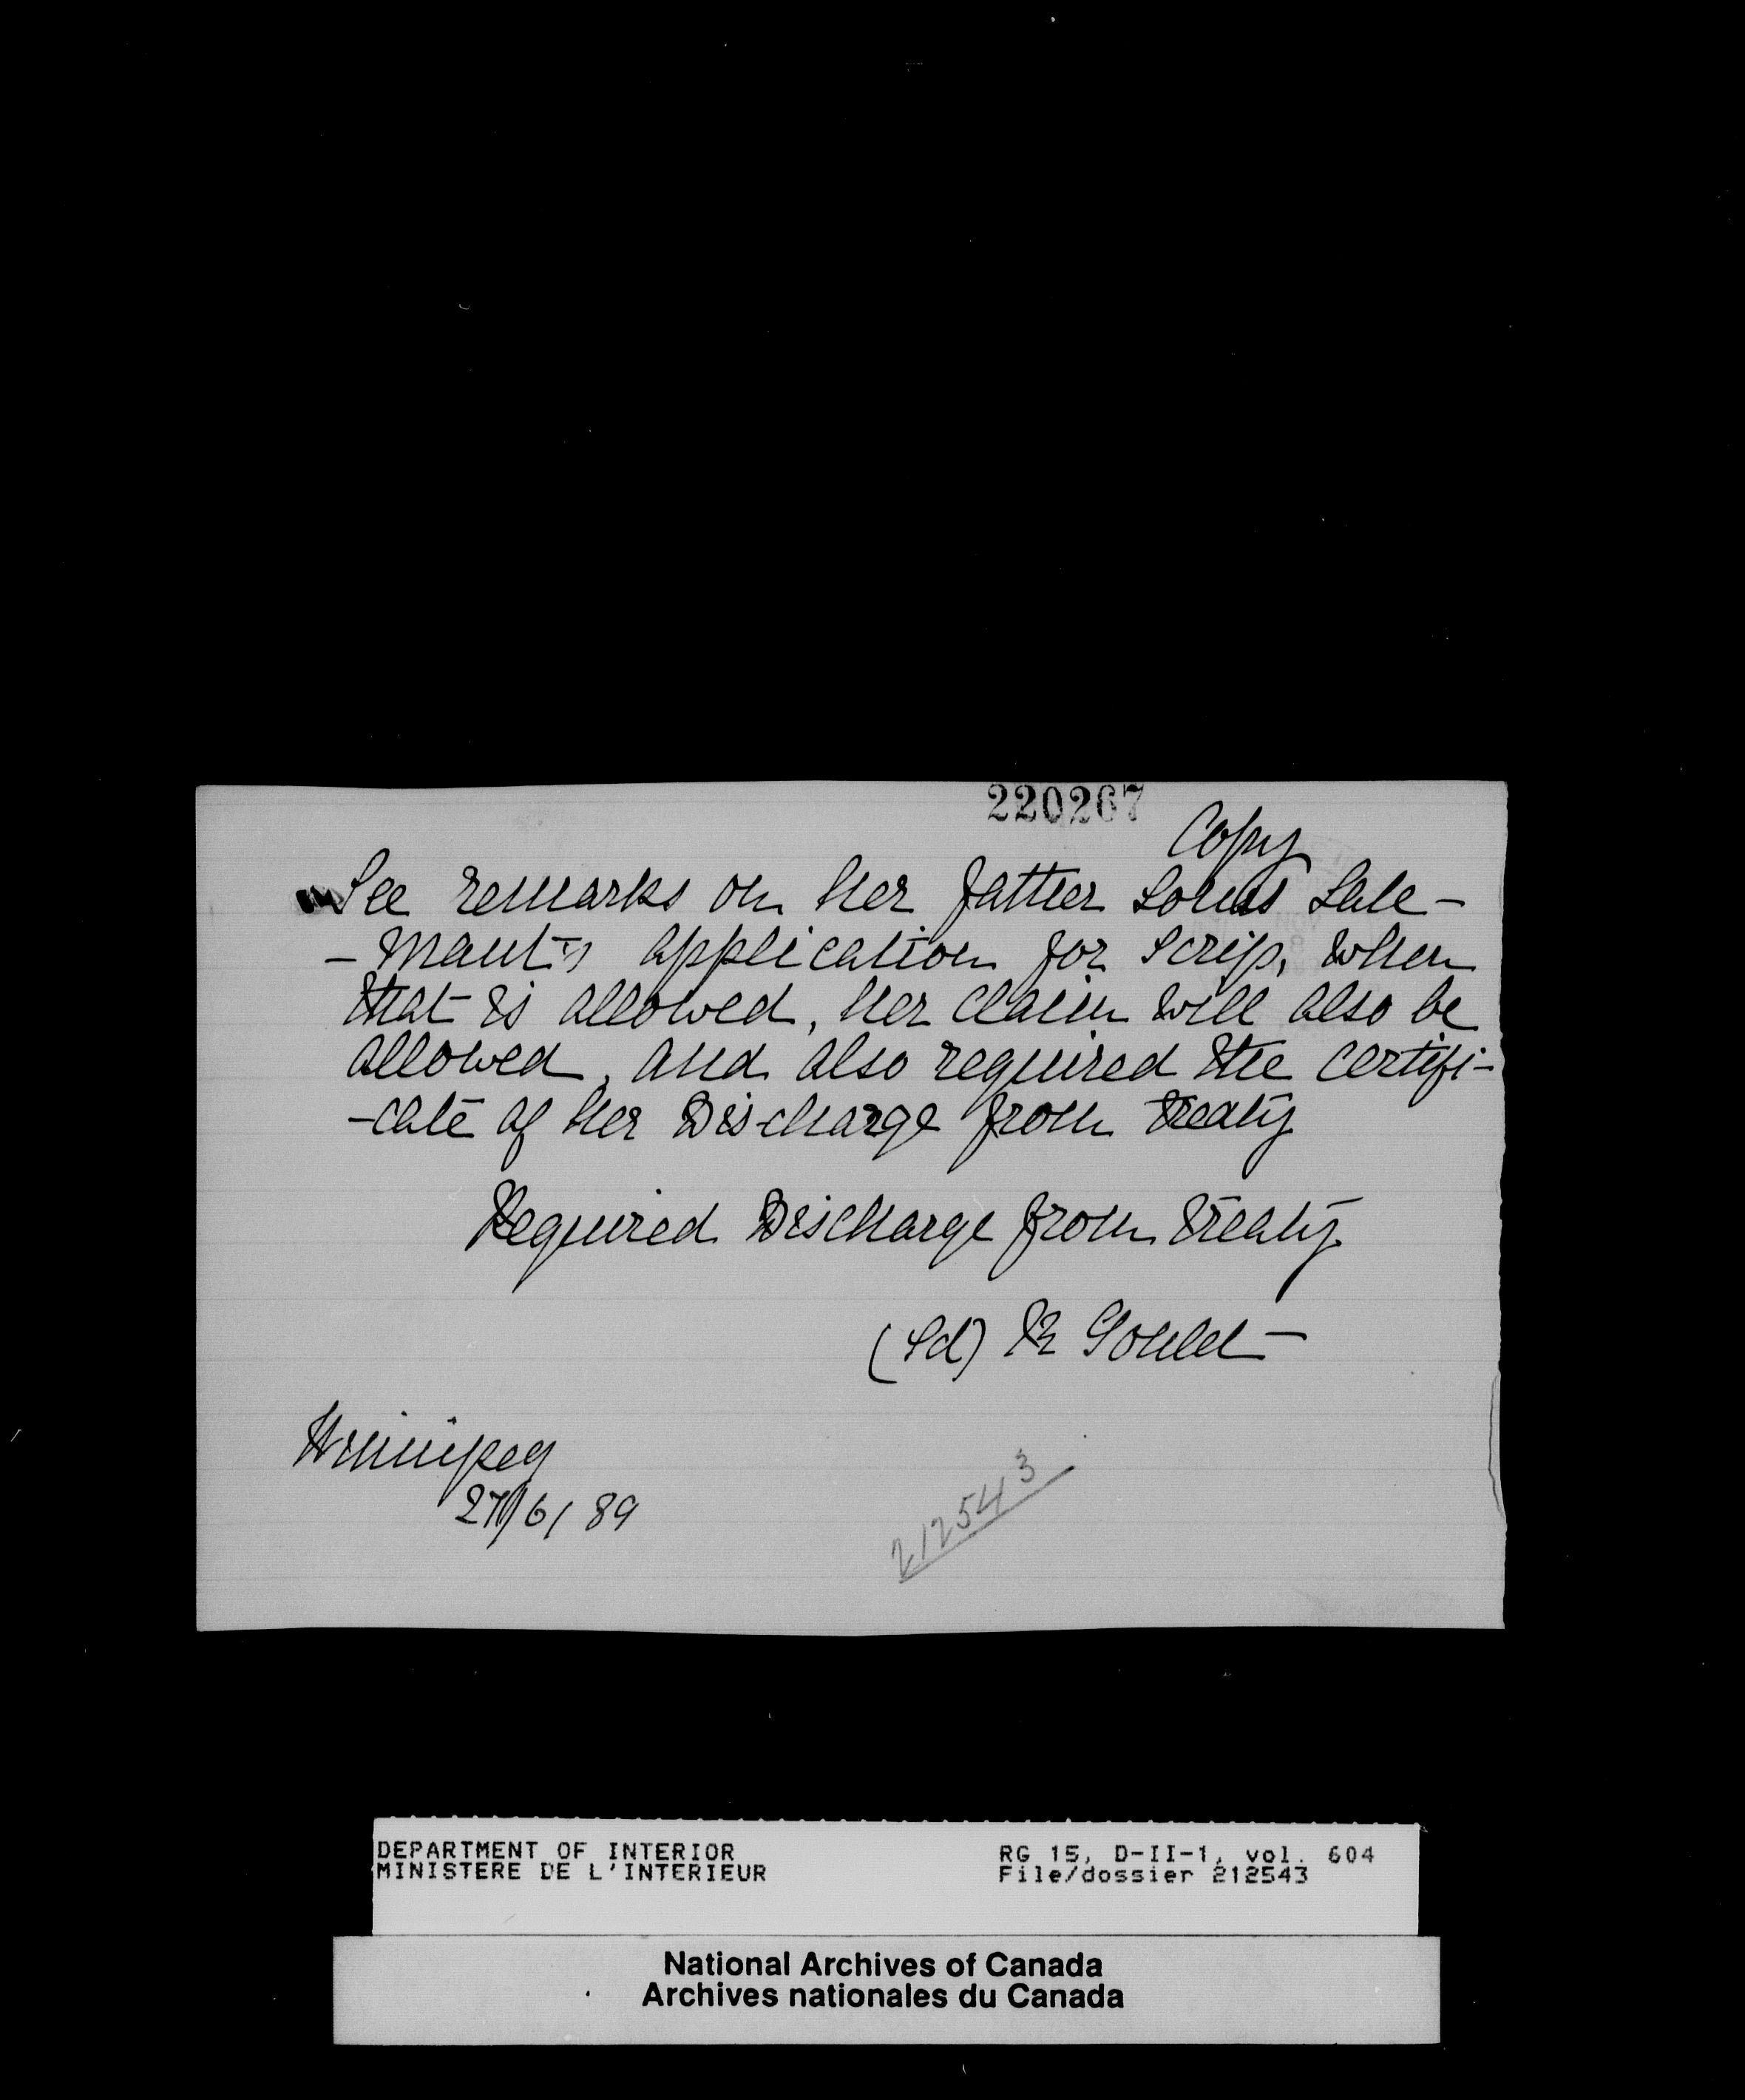 220267
Copy
See remarks on her father Louis Lale-
-mant's application for scrip, when
that is allowed, her claim will also be
allowed, and also required the certifi-
-cate of her Discharge from treaty
Required Discharge from treaty
(Sd) R Goulet
Winnipeg
27/6/89
212543
DEPARTMENT OF INTERIOR
MINISTERE DE L'INTERIEUR
RG 15, D-II-1, vol. 604
File/dossier 212543
National Archives of Canada
Archives nationales du Canada